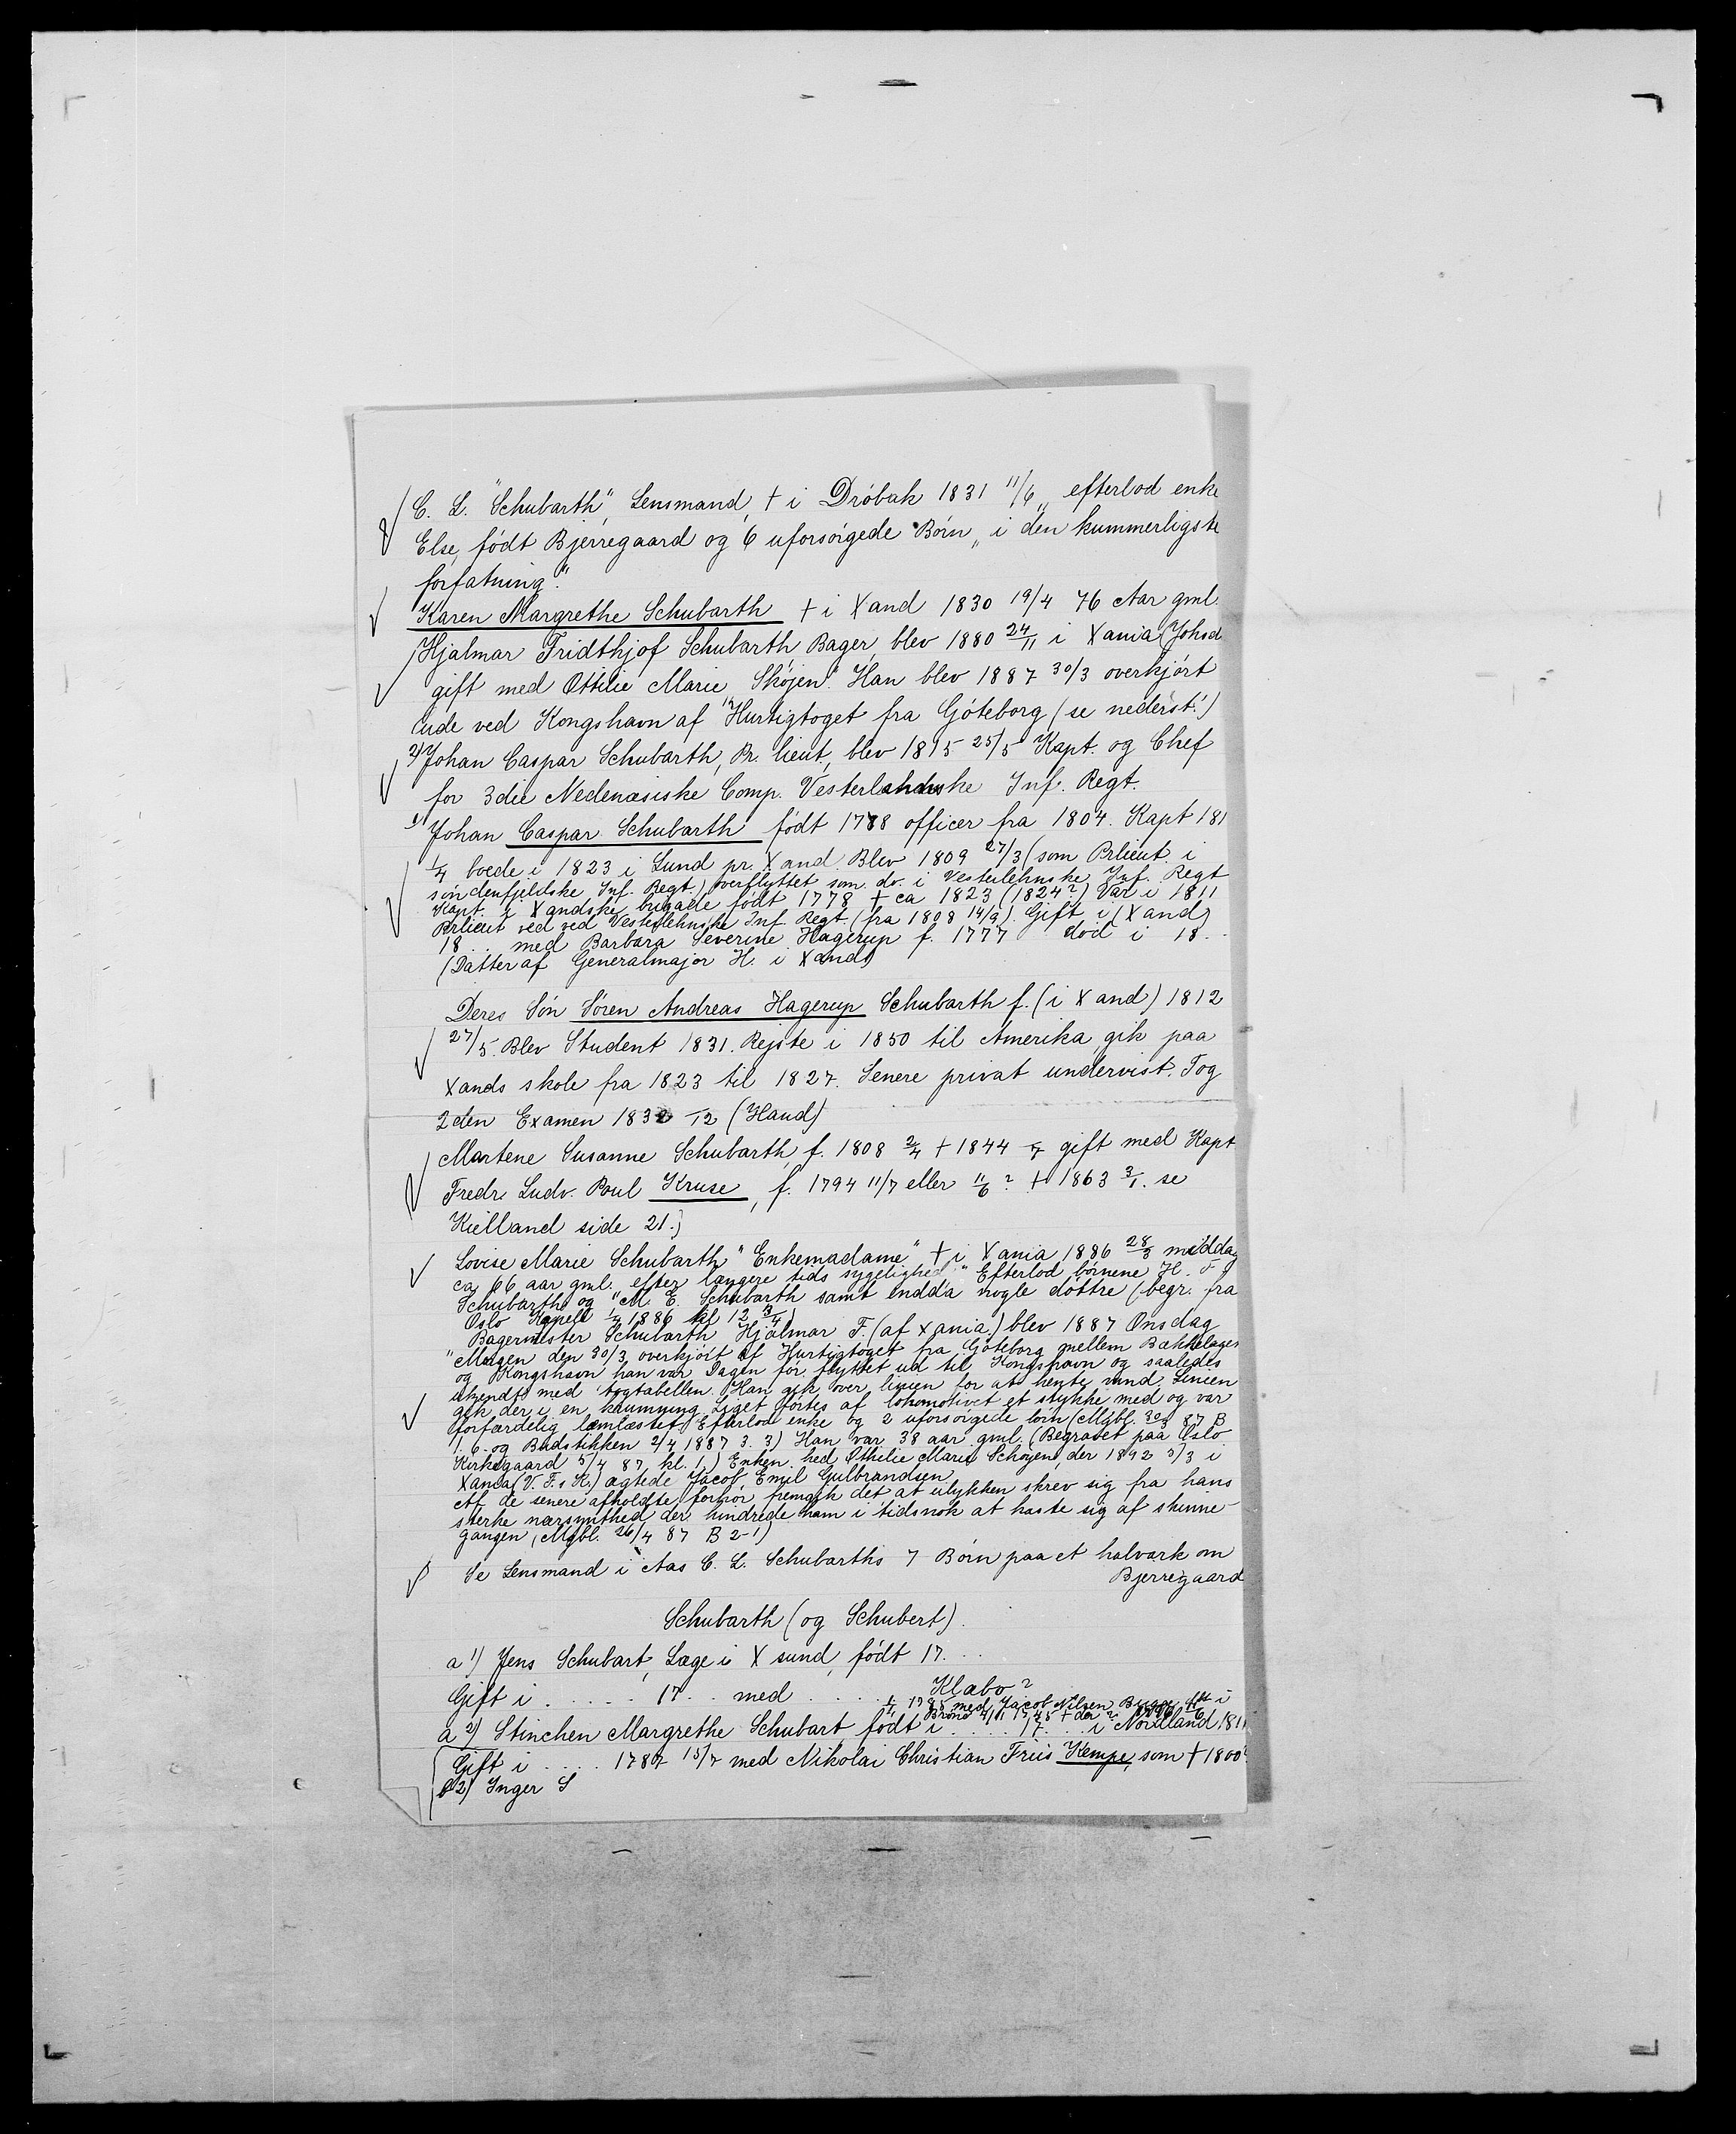 C. L. "Schubarth", Lensmand, † i Dröbak 1831 11/6 „efterlod enke
Else, født Bjerregaard og 6 uforsörgede Börn „i den kummerligste
forfatning."
Karen Margrethe Schubarth † i Xand 1830 19/4 76 Aar gml.
Hjalmar Fridthjof Schubarth Bager, blev 1880 24/11 i Xania (Johsd
gift med Ottilie Marie Sköjen". Han blev 1887 30/3 overkjört
ude ved Kongshavn af "Hurtigtoget fra Göteborg (se nederst!)
2) Johan Caspar Schubarth, Pr. lieut, blev 1815 25/5 Kapt. og Chef
for 3die Nedenæsiske Comp. Vesterlehnske Inf. Regt.
1) Johan Caspar Schubarth født 1778 officer fra 1804. Kapt 181
1/4 boede i 1823 i Lund pr. Xand. Blev 1809 27/3 (som Prlieut. i
söndenfjeldske Inf. Regt.) overflyttet som do. i Vesterlehnske Inf. Regt
Kapt. i Xandske brigade født 1778 † ca 1823 (1824?) Var i 1811
Prlieut ved ved Vesterlehnske Inf. Regt (fra 1808 14/9). Gift i (Xand)
18.. med Barbara Severine Hagerup f. 1777 död i 18..
(Datter af Generalmajor H. i Xand)
Deres Sön Sören Andreas Hagerup Schubarth f. (i Xand) 1812
27/5. Blev Student 1831. Rejste i 1850 til Amerika, gik paa
Xands skole fra 1823 til 1827. Senere privat undervist. Tog
2den Examen 1832 /12 (Haud)
Martene Susanne Schubarth f. 1808 2/4 † 1844 /7 gift med Kapt
Fredr. Ludv. Poul Kruse, f. 1794 11/7 eller 11/6? † 1863 3/1. se
Kielland side 21.)
Lovise Marie Schubarth "Enkemadame" † i Xania 1886 28/3 middag
ca 66 aar gml. efter længere tids sygelighed." Efterlod börnene H. F.
Schubarth og "M. E. Schubarth samt endda nogle döttre (begr. fra
Oslo Kapell 1/4 1886 kl 12 3/4)
Bagermester Schubarth Hjalmar F. (af Xania.) blev 1887 Onsdag
"Morgen den 30/3 overkjört af Hurtigtoget fra Göteborg mellem Bækkelaget
og Kongshavn han var Dagen för flyttet ud til Kongshavn og saaledes
ukendt med togtabellen. Han gik over linien for at hente vand. Linien
gik der i en krumning. Liget förtes af lokomotivet et stykke med og var
forfærdelig læmlæstet. Efterlod enke og 2 uforsörgede börn (Mgbl. 30/3 87 B
1. 6. og Budstikken 2/4 1887 3. 3) Han var 38 aar gml. (Begravet paa Oslo
Kirkegaard 5/4 87, kl. 1.) Enken hed Othilie Marie Schøyen, der 1892 3/3 i
Xania (V. F. s K.) ægtede Jacob Emil Gulbrandsen
Af de senere afholdte forhör fremgik det at ulykken skrev sig fra hans
sterke nærsynthed der hindrede ham i tidsnok at kaste sig af skinne-
gangen, (Mgbl. 26/4 87 B 2-1)
Se Lensmand i Aas C. L. Schubarths 7 Börn paa et halvark om
Bjerregaard
Schubarth (og Schubert).
a 1) Jens Schubart, Læge i Xsund, født 17...
Gift i ..... 17.. med ..... Klæbo?
1785 med Jacob Nilsen Bugge
a 2) Stinchen Margrethe Schubart født i .... 17... i Nordland 1811
Gift i .... 1787 15/7 med Nikolai Christian Friis Kempe, som † 1800
2) Inger S